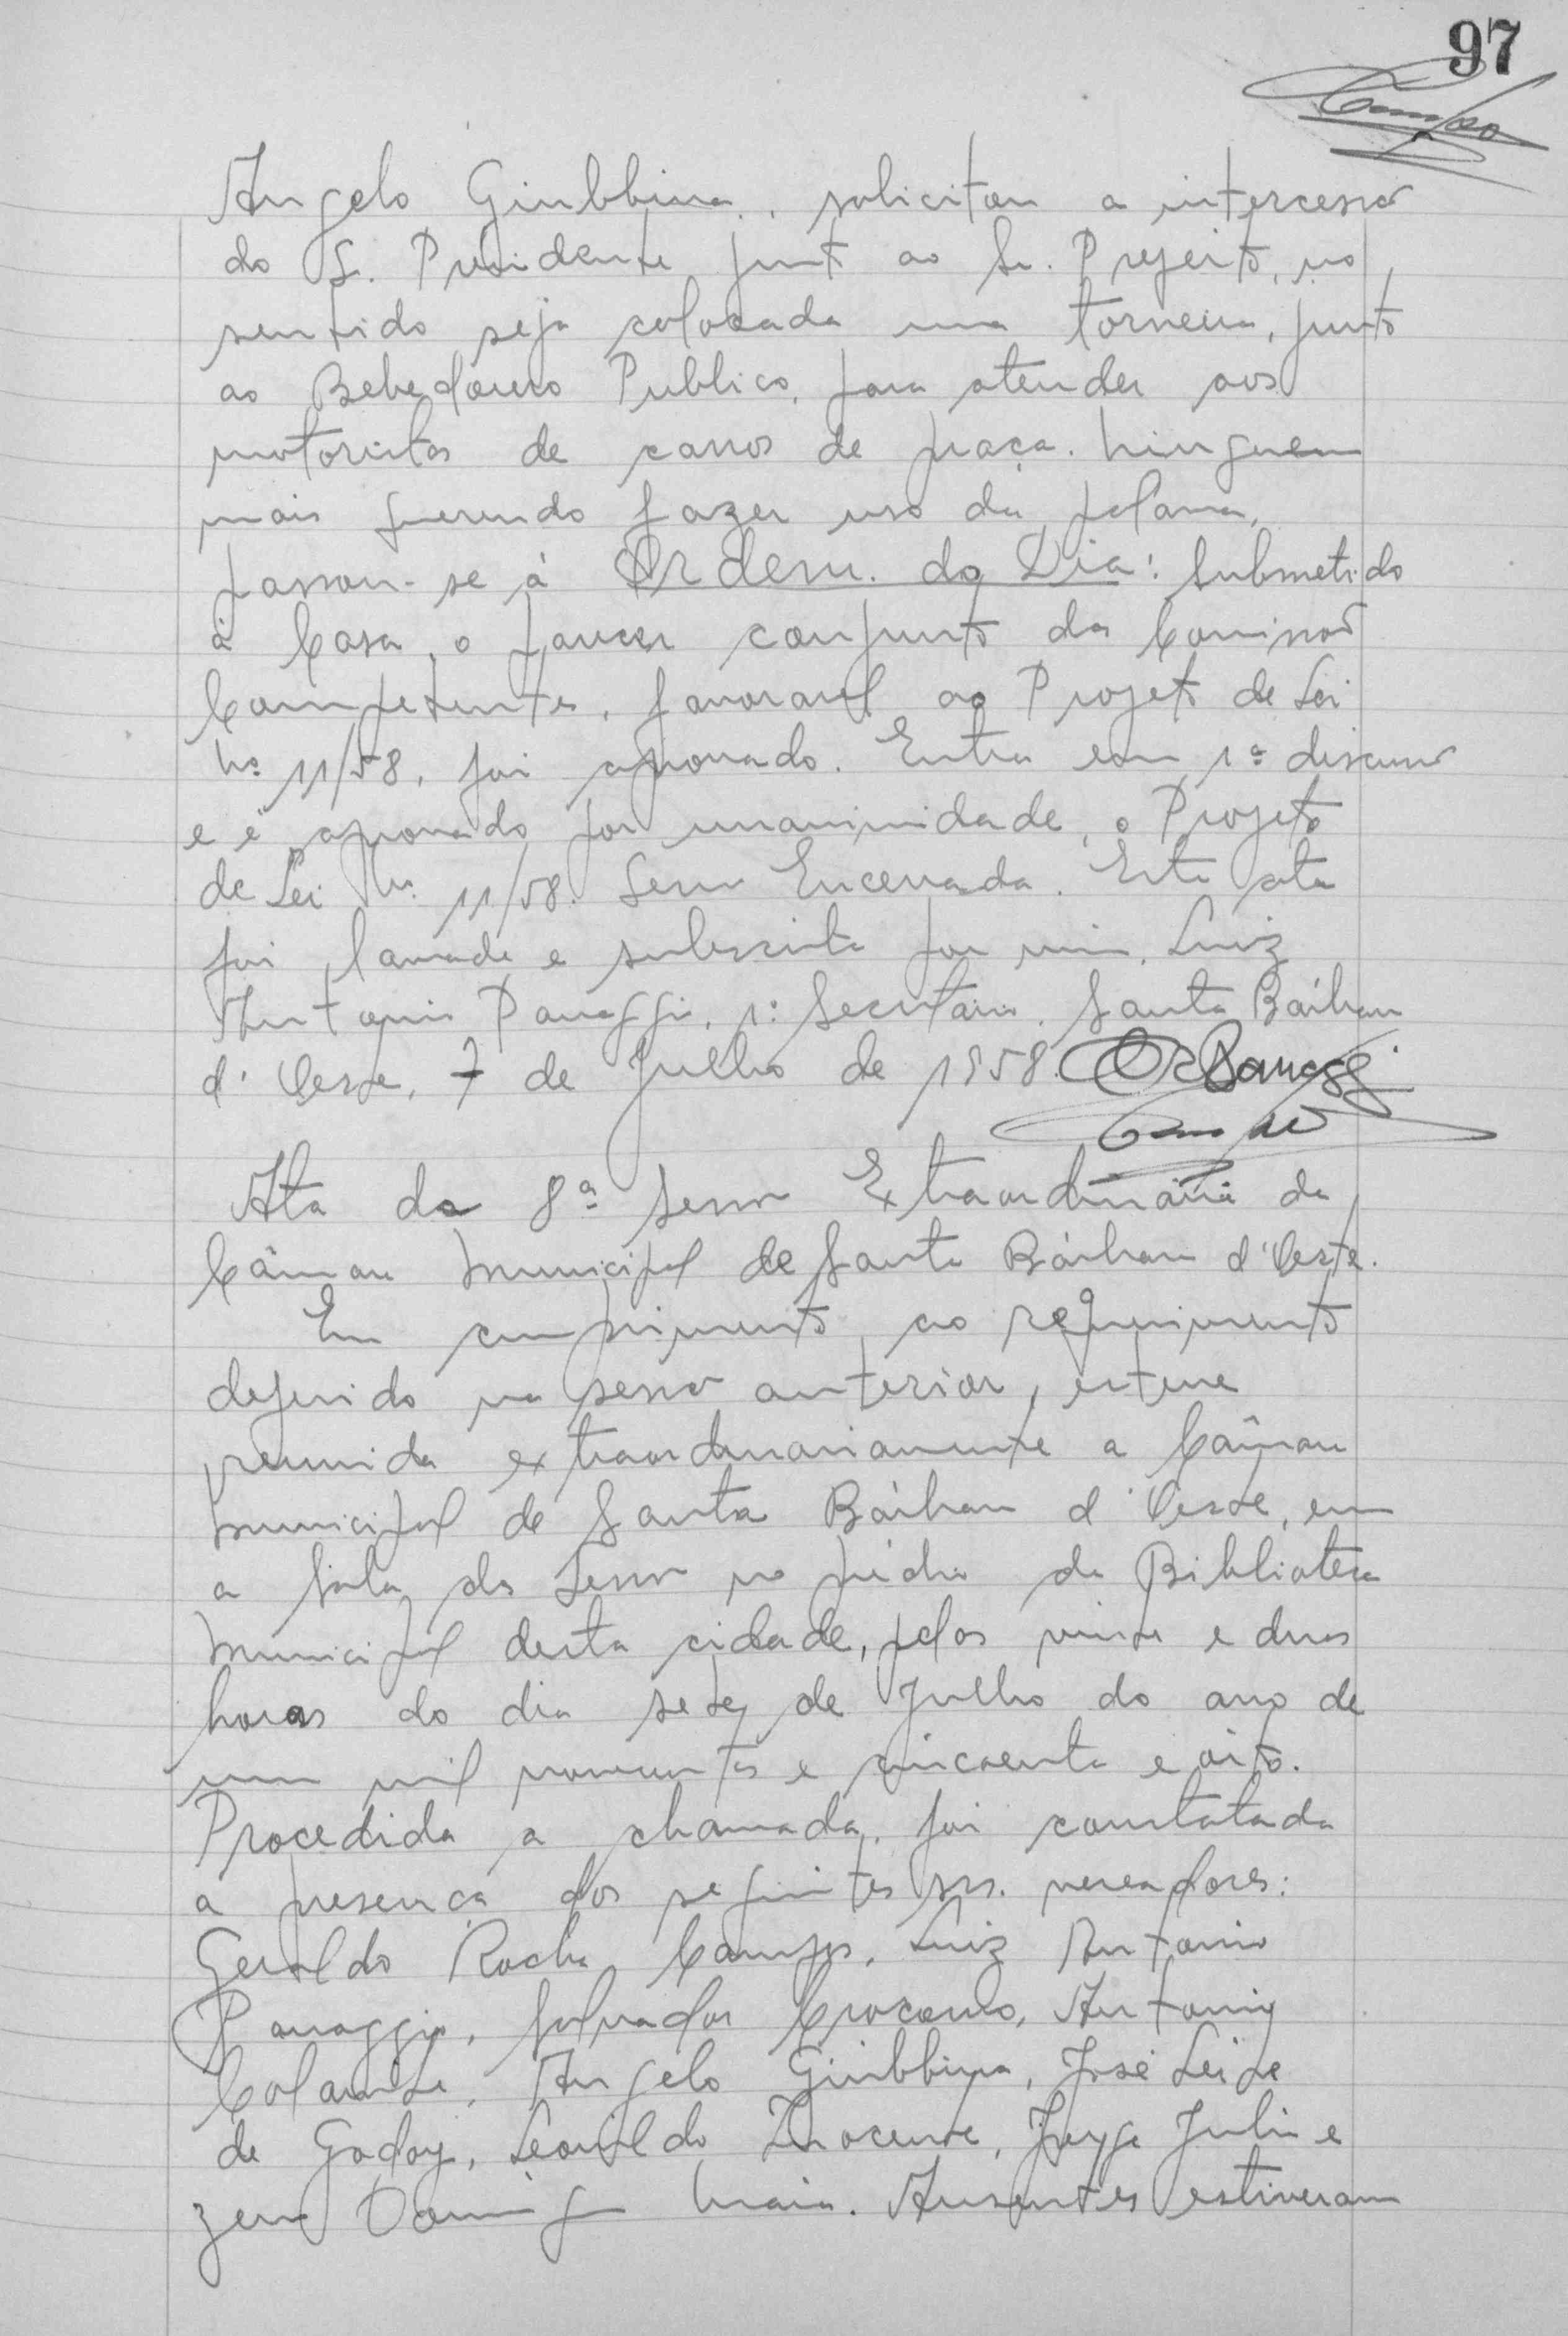 97
Angelo Giubbina, solicitou a intercessão
do S. Presidente junto ao Sr. Prefeito, no
sentido seja colocada uma torneira, junto
ao Bebedouro Publico, para atender aos
motoristas de carros de praça. Ninguem
mais querendo fazer uso da palavra,
passou-se à Ordem do Dia: Submetido
à Casa, o parecer conjunto das Comissões
Competentes, favoravel ao Projeto de Lei
Nº 11/58, foi aprovado. Entra em 1ª discussão
e é aprovado por unanimidade, o Projeto
de Lei Nº 11/58. Sessão Encerrada. Esta ata
foi lavrada e subscrita por mim, Luiz
Antonio Panaggio, 1º Secretário. Santa Bárbara
d'Oeste, 7 de Julho de 1958.
Ata da 8ª Sessão Extraordinária da
Câmara Municipal de Santa Bárbara d'Oeste.
Em cumprimento ao requerimento
deferido na sessão anterior, esteve
reunida extraordinariamente a Câmara
Municipal de Santa Bárbara d'Oeste, em
a Sala das Sessões no prédio da Biblioteca
Municipal desta cidade, pelas vinte e duas
horas do dia sete de Julho do ano de
um mil novecentos e cincoenta e oito.
Procedida a chamada, foi constatada
a presença dos seguintes srs. vereadores:
Geraldo Rocha Campos, Luiz Antonio
Panaggio, Salvador Crocomo, Antonio
Colamite, Angelo Giubbina, José Leite
de Godoy, Leonildo Inocente, Jorge Julio e
Domingos Maia. Ausentes estiveram